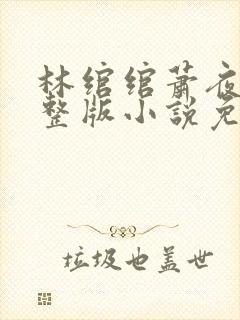 林绾绾萧夜
整版小說免
垃圾也盖世